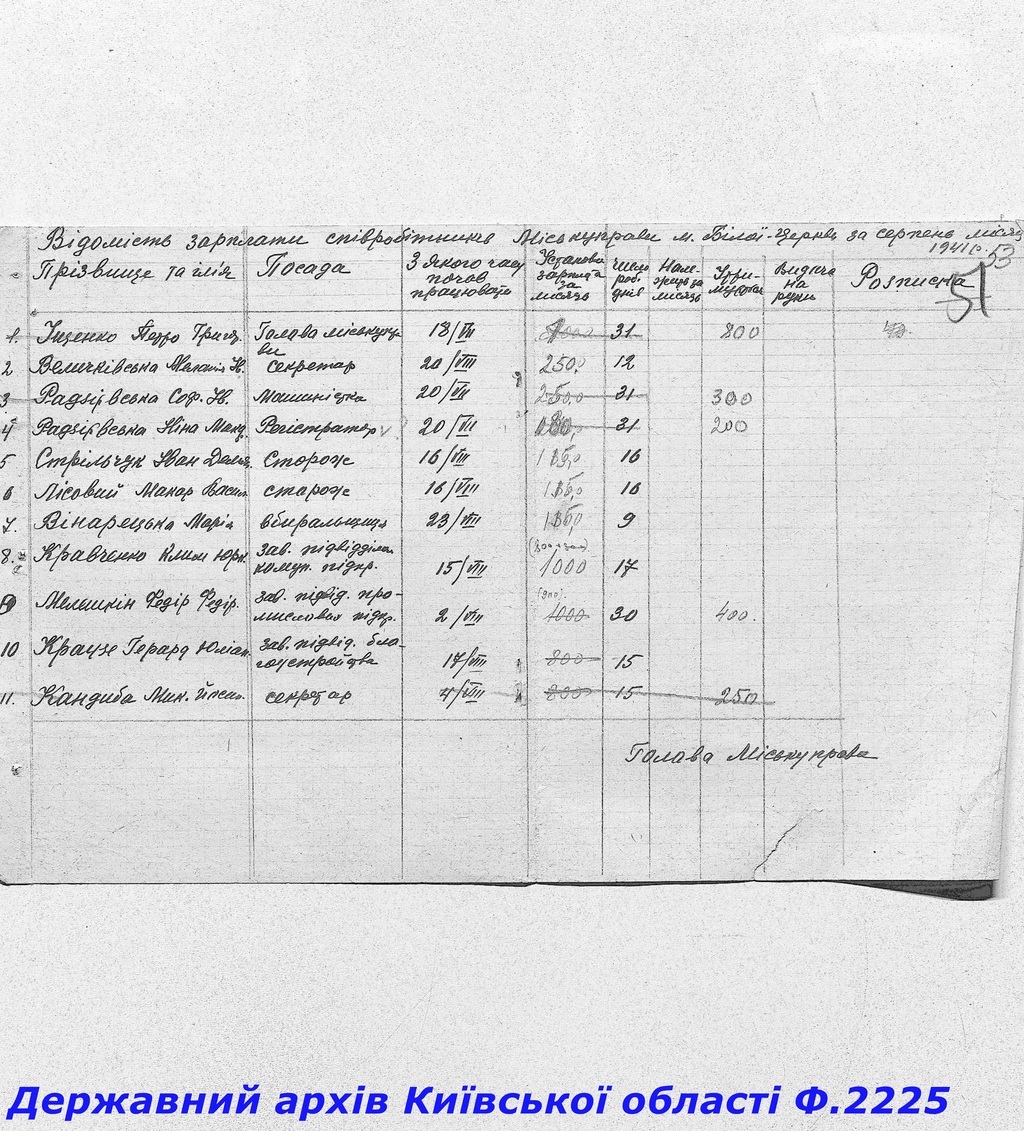 Відомість зарплати співробітників Міськуправи м. Білої-Церкви за серпень місяць
1941 р. 53
Прізвище та ім'я Посада З якого часу почав працювати Установл. зарплата за місяць Число роб. днів Належить за місяць Утримується Видача на руки Розписка
51
1. Петро Григ. Голова міськуправи 18/VII 31 800
2 Величківська Меланія секретар 20/VIII 250 12
3 Радзієвська Соф. Ів. Машиністка 20/VII 250,0 31 300
4 Радзієвська Ніна Регістратор 20/VII 31 200
5 Стрільчук Іван Дем. Сторож 16/VIII 16
6 Лісовий Макар Васил. сторож 16/VIII 16
7. Вінарецька Марія вбиральщиця 23/VIII 9
8. Кравченко Клим Юрк. Зав. підвідділом комун. підпр. 15/VIII 1000 17
9 Федір Федір. зав. підвід. промислових підпр. 2/VIII (300). 1000 30 400.
10 Краузе Герард Юліан. Зав. підвід. благоустройства 17/VIII 800 15
11. Кандиба Мик. секретар 4/VIII 800 15 250
Голава Міськуправи
Державний архів Київської області Ф.2225